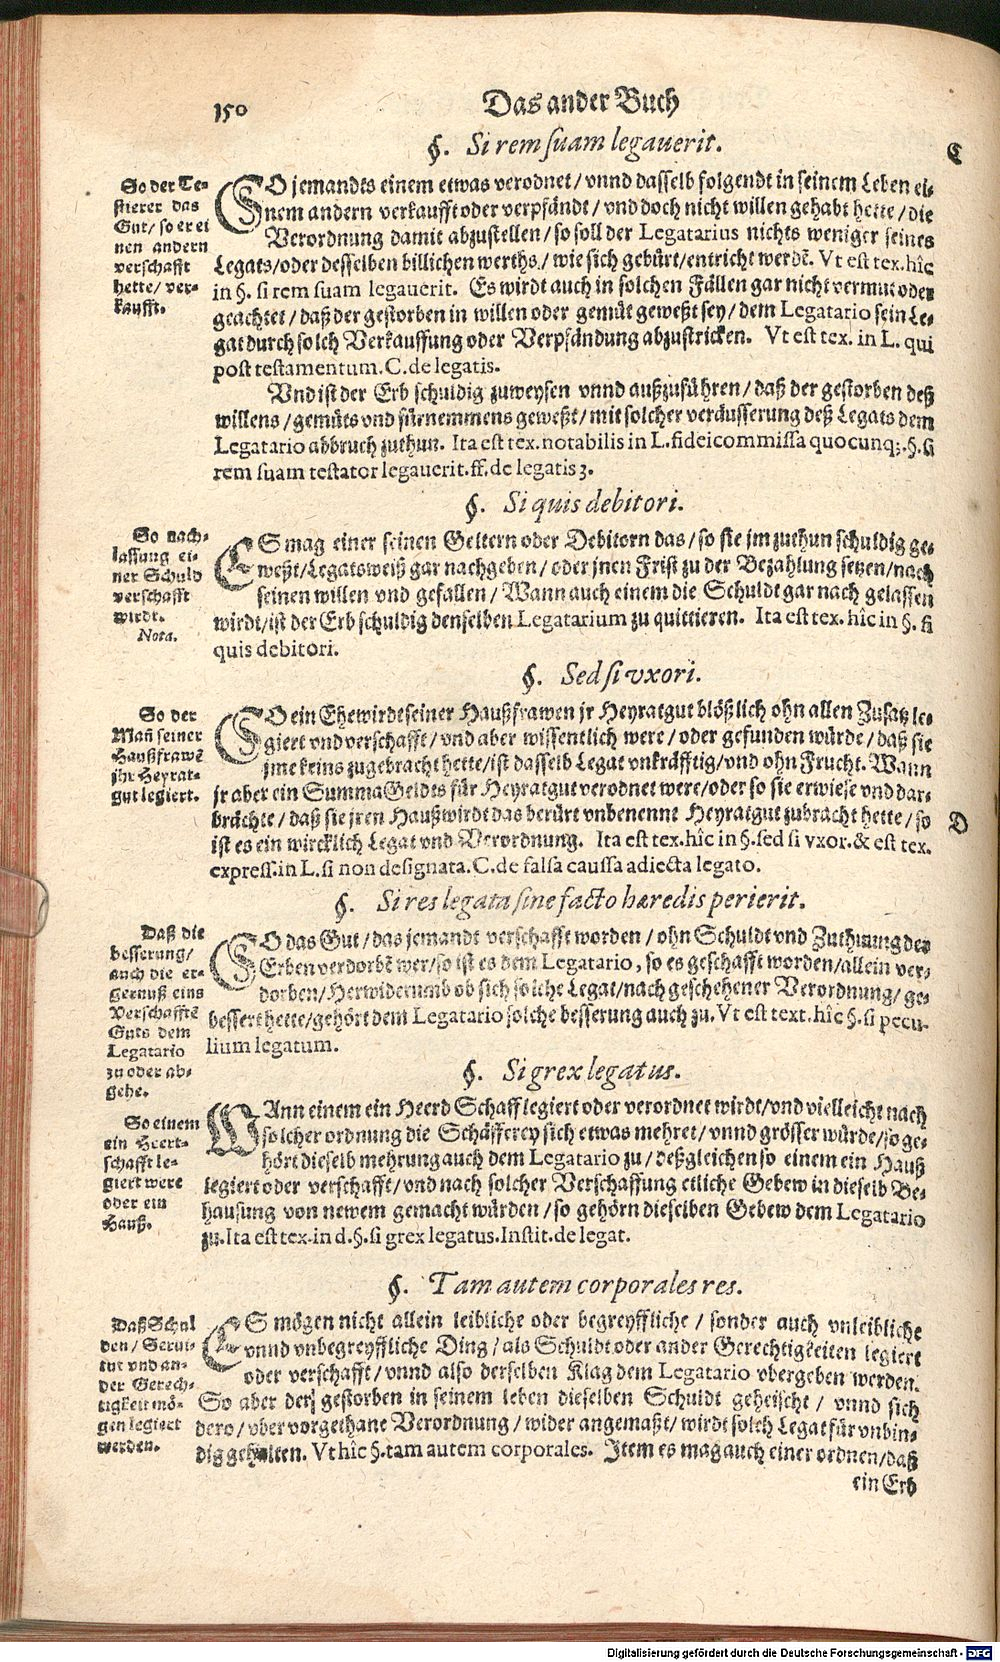 150
Das ander Buch
§. Si rem suam legauerit.
C
So der Te-
stierer das
Gut/ so er ei
nen andern
verschafft
hette/ ver-
kaufft.
SO jemandts einem etwas verodnet/ vnnd dasselb folgendt in seinem Leben ei-
nem andern verkaufft oder verpfändt/ vnd doch nicht willen gehabt hette/ die
Verordnung damit abzustellen/ so soll der Legatarius nichts weniger seines
Legats/ oder desselben billichen werths/ wie sich gebürt/ entricht werdẽ. Vt est tex. hîc
in §. si rem suam legauerit. Es wirdt auch in solchen Fällen gar nicht vermut oder
geachtet/ daß der gestorben in willen oder gemüt geweßt sey/ dem Legatario sein Le-
gat durch solch Verkauffung oder Verpfändung abzustricken. Vt est tex. in L. qui
post testamentum. C. de legatis.
Vnd ist der Erb schuldig zuweysen vnnd außzuführen/ daß der gestorben deß
willens/ gemüts vnd fürnemmens geweßt/ mit solcher veräusserung deß Legats dem
Legatario abbruch zuthun. Ita est tex. notabilis in L. fideicommissa quocunq;. §. si
rem suam testator legauerit. ff. de legatis 3.
§. Si quis debitori.
So nach-
lassung ei-
ner Schuld
verschafft
wirdt.
Nota.
ES mag einer seinen Geltern oder Debitorn das/ so sie jm zuthun schuldig ge-
weßt/ Legatsweiß gar nachgeben/ oder jnen Frist zu der Bezahlung setzen/ nach
seinen willen vnd gefallen/ Wann auch einem die Schuldt gar nach gelassen
wirdt/ ist der Erb schuldig denselben Legatarium zu quittieren. Ita est tex. hîc in §. si
quis debitori.
§. Sed si vxori.
So der
Mañ seiner
Haußfrawẽ
jhr Heyrat-
gut legiert.
SO ein Ehewirdt seiner Haußfrawen jr Heyratgut blößlich ohn allen Zusatz le-
giert vnd verschafft/ vnd aber wissentlich were/ oder gefunden würde/ daß sie
jme keins zugebracht hette/ ist dasselb Legat vnkräfftig/ vnd ohn Frucht. Wann
jr aber ein Summa Geldts für Heyratgut verodnet were/ oder so sie erwiese vnd dar-
brächte/ daß sie jren Haußwirdt das berürt vnbenennt Heyratgut zubracht hette/ so
ist es ein wircklich Legat vnd Verordnung. Ita est tex. hîc in §. sed si vxor. & est tex.
express. in L. si non designata. C. de falsa caussa adiecta legato.
D
§. Si res legata sine facto hæredis perierit.
Daß die
besserung/
auch die er-
gernuß eins
Verschafftẽ
Guts dem
Legatario
zu oder ab-
gehe.
SO das Gut/ das jemandt verschafft worden/ ohn Schuldt vnd Zuthuung der
Erben verdorbẽ wer/ so ist es dem Legatario, so es geschafft worden/ allein ver-
dorben/ Herwiderumb ob sich solche Legat/ nach geschehener Verordnung/ ge-
bessert hette/ gehört dem Legatario solche besserung auch zu. Vt est text. hîc §. si pecu-
lium legatum.
§. Si grex legatus.
So einem
ein Heert-
schafft le-
giert were
oder ein
Hauß.
WAnn einem ein Heerd Schaff legiert oder verordnet wirdt/ vnd vielleicht nach
solcher ordnung die Schäfferey sich etwas mehret/ vnnd grösser würde/ so ge-
hört dieselb mehrung auch dem Legatario zu/ deßgleichen so einem ein Hauß
legiert oder verschafft/ vnd nach solcher Verschaffung etliche Gebew in dieselb Be-
hausung von newem gemacht würden/ so gehörn dieselben Gebew dem Legatario
zu. Ita est tex. in d. §. si grex legatus. Instit. de legat.
§. Tam autem corporales res.
Daß Schul
den/ Serui-
tut vnd an-
der Gerech-
tigkeit mö-
gen legiert
werden.
ES mögen nicht allein leibliche oder begreyffliche/ sonder auch vnleibliche
vnnd vnbegreyffliche Ding/ als Schuldt oder ander Gerechtigkeiten legiert
oder verschafft/ vnnd also derselben Klag dem Legatario vbergeben werden.
So aber der gestorben in seinem leben dieselben Schuldt geheischt/ vnnd sich
dero/ vber vorgethane Verordnung/ wider angemaßt/ wirdt solch Legat für vnbin-
dig gehalten. Vt hîc §. tam autem corporales. Item es mag auch einer ordnen/ daß
ein Erb
Digitalisierung gefördert durch die Deutsche Forschungsgemeinschaft - DFG